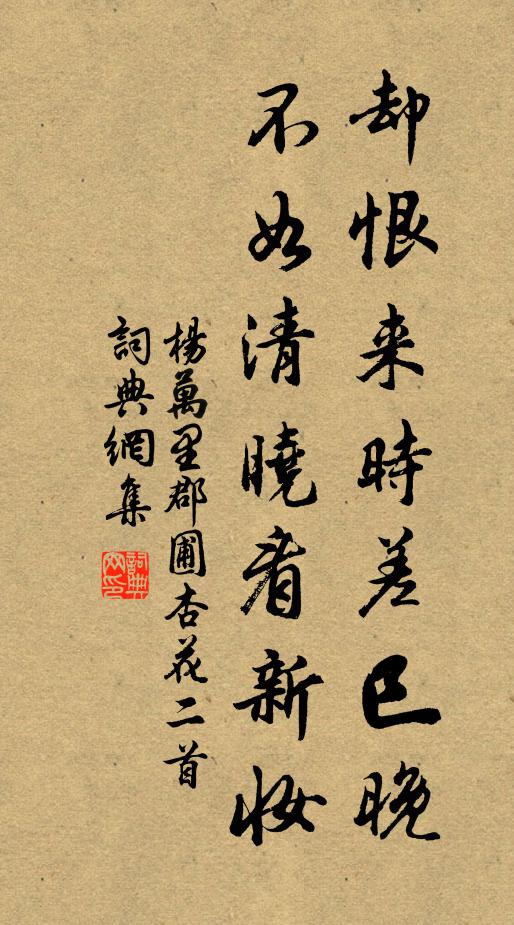 却恨来時差已晚
不如清曉看新妝
楊萬里郡圃杏花二首
詞典網集
詞典網印